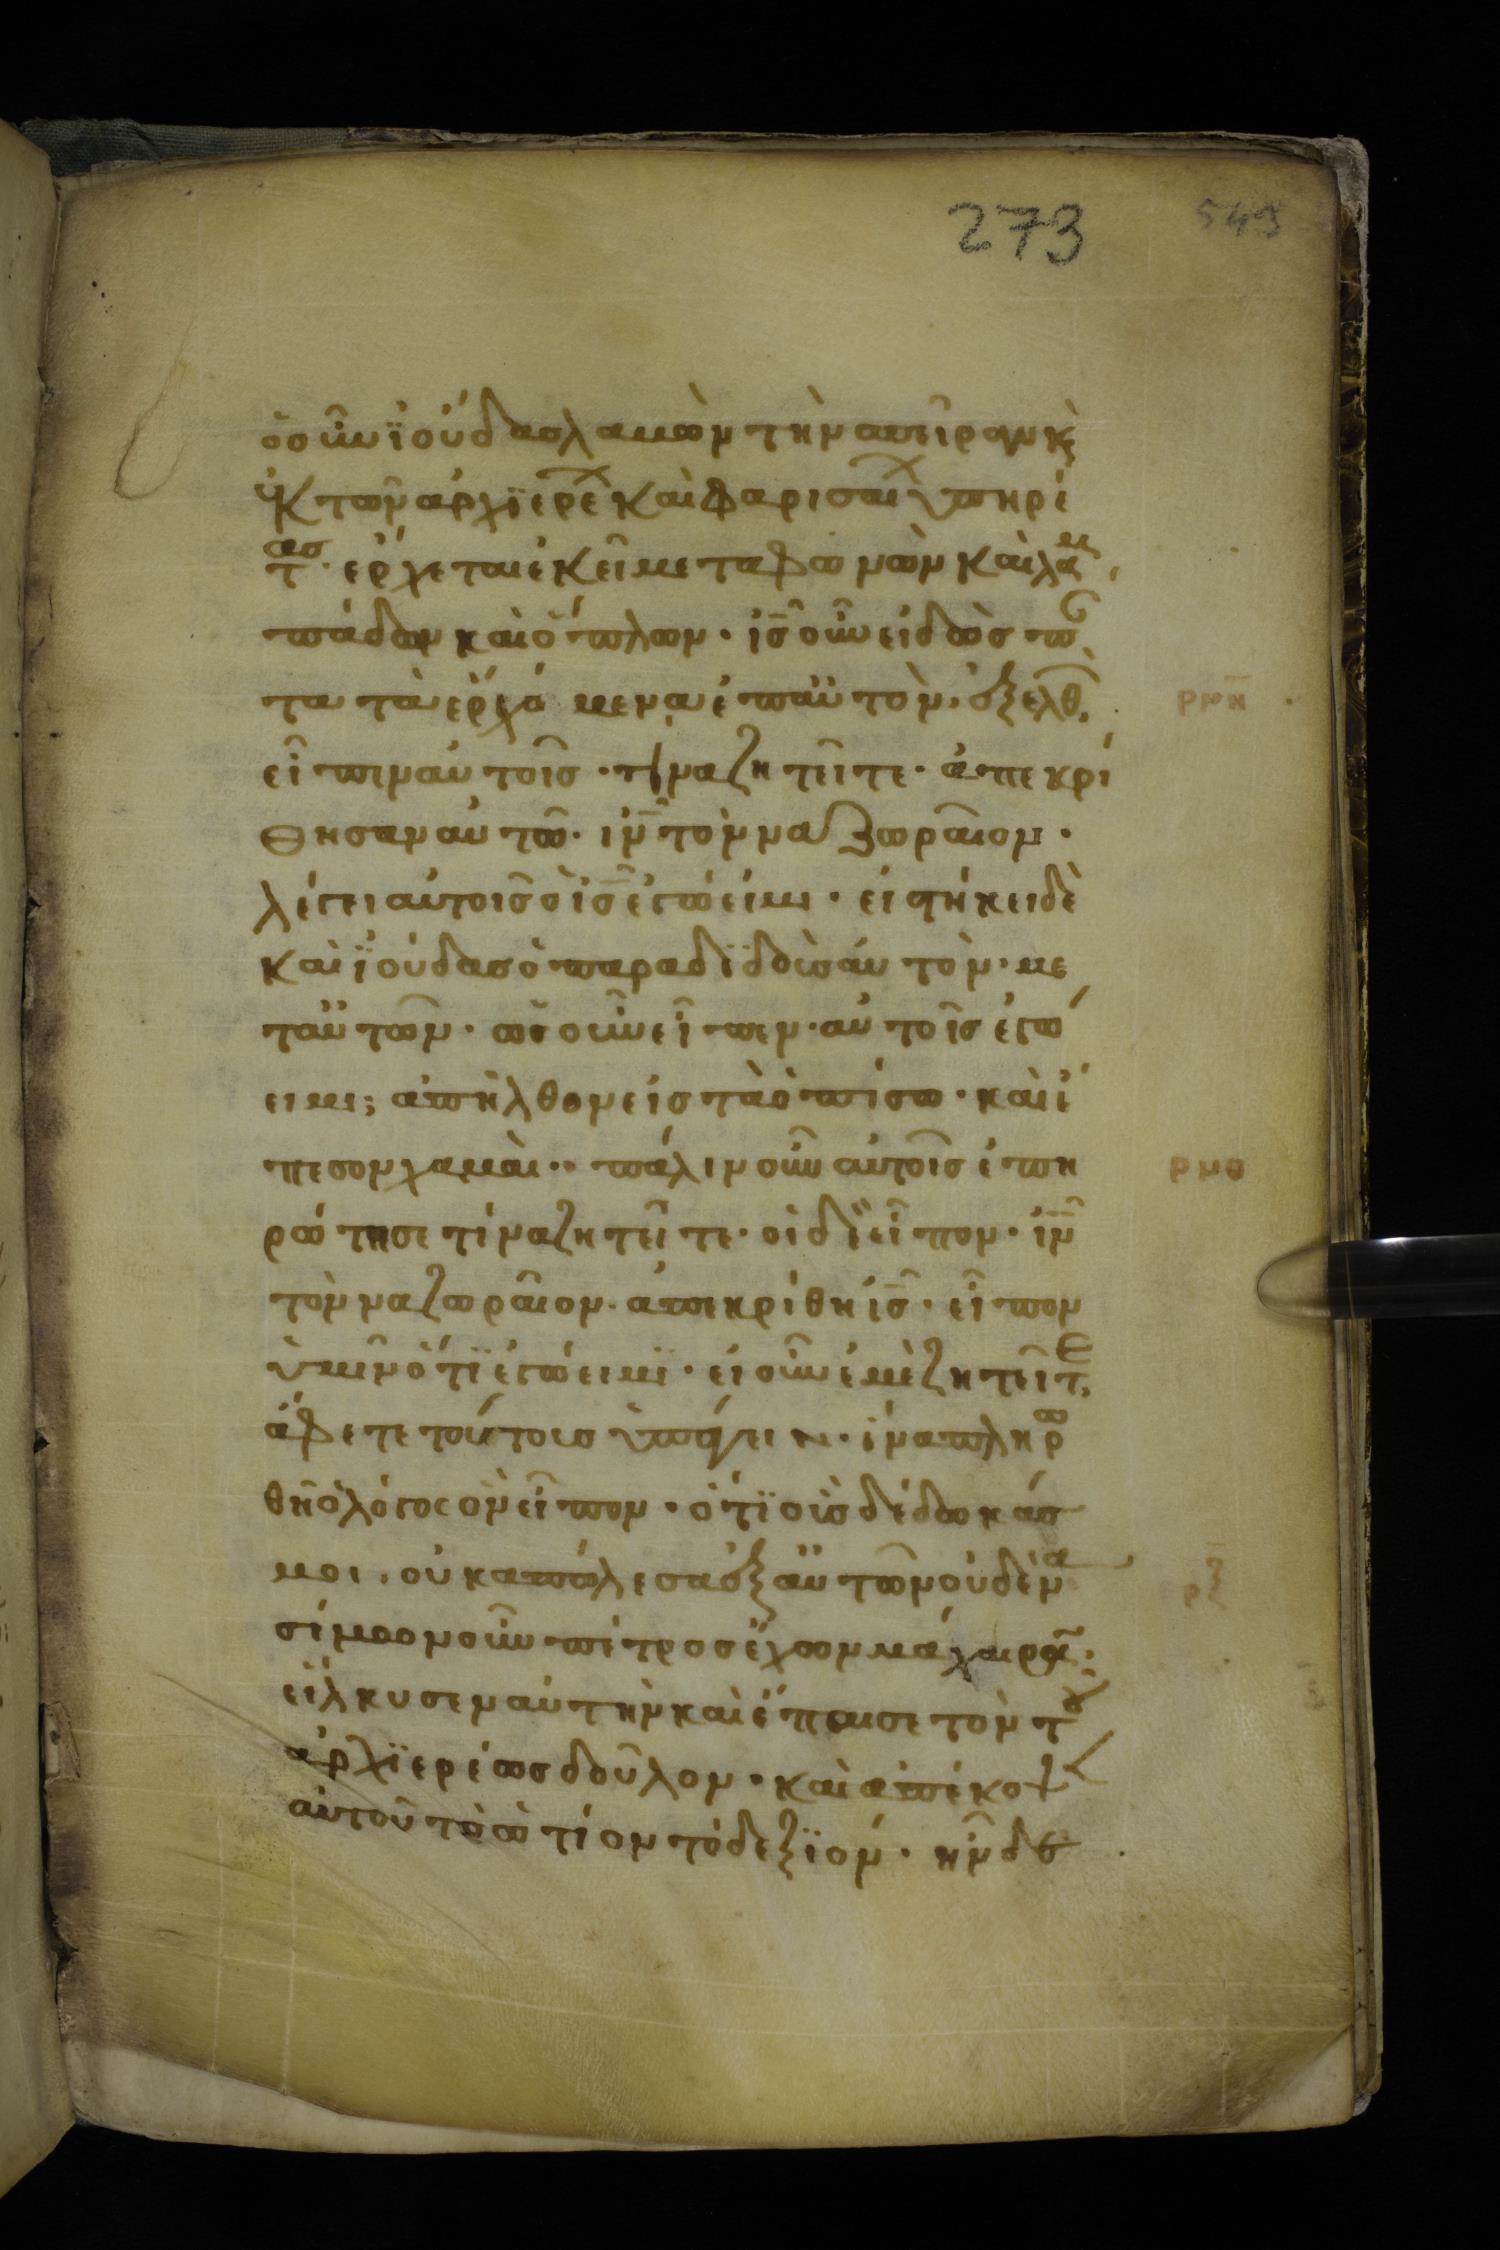 273 543
ὁ οὖν ϊούδας λαβὼν τὴν σπεῖραν κ(αὶ)
ἐκ τῶν ἀρχϊερε͂ καὶ φαρισαῖ ὑπηρέ
τ(ας)· ἔρχεται ἐκεῖ μετα φανὼν καὶ λαμ
πάδων καὶ ὅπλων· ἰς̅ οὖν εἰδὼς πάν
τα τὰ ἐρχόμενα ἐπ αὐτὸν· ἐξελθ(ὼν)
εἶπεν αὐτοῖς· τίνα ζητεῖτε· ἀπεκρί
θησαν αὐτῶ· ιν̅ τὸν ναζωραῖον·
λέγει αὐτοῖς ὁ ἰς̅ ἐγώ εἰμι· εἱστήκει δὲ
καὶ ϊούδας ὁ παραδϊδοὺς αὐτὸν· με
τ αὐτῶν· ὡς οὖν εἶπεν· αὐτοῖς ἐγώ
ειμι; ἀπῆλθον εἰς τὰ ὀπίσω· καὶ ἔ
πεσον χαμαὶ·· πάλιν οὖν αὐτοῖς ἐπη
ρώτησε τίνα ζητεῖτε· οἱ δὲ εἶπον· ἰν̅
τὸν ναζωραῖον· ἀπεκρίθη ἰς̅· εἶπον
ὑμῖν ὅτϊ ἐγώ ειμϊ· εἰ οὖν ἐμὲ ζητεῖτε
ἄφετε τούτους ὑπάγειν· ἵνα πληρω
θῆ ὁ λόγος ὃν εἶπον· ὅτϊ οὓς δέδωκάς
μοι· οὐκ απώλεσα ἐξ αὐτῶν οὐδένα
σίμων οὖν πέτρος ἔχων μάχαιρᾶ·
εἵλκυσεν αὐτὴν καὶ ἔπαισε τὸν τοῦ
ἀρχϊερέως δοῦλον· καὶ ἀπέκοψ(εν)
αὐτοῦ τὸ ὠτίον τὸ δεξϊόν· ἦν δὲ
ρμη̅
ρμθ
ρν̅